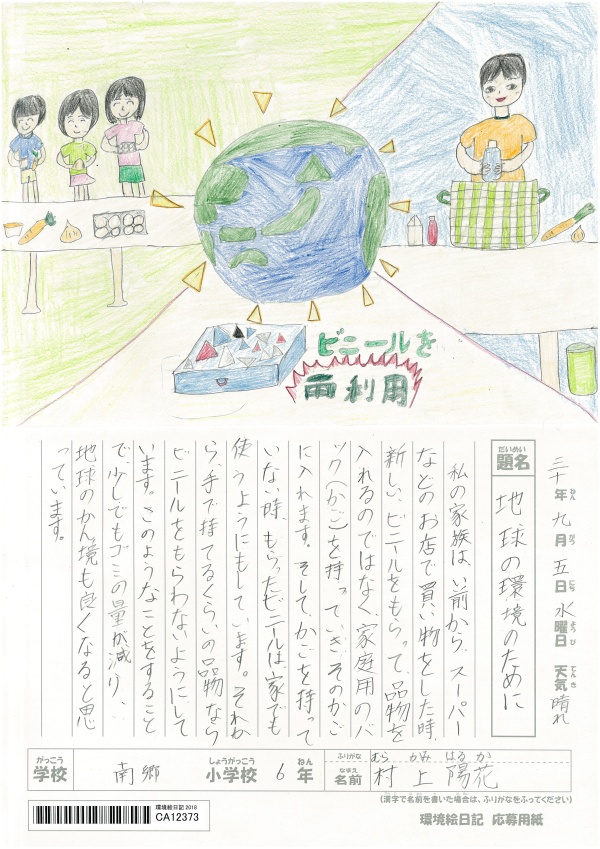 ビニールを
再利用
三十年九月五日水曜日 天気晴れ
ねん がつ にち ようび てんき
だいめい
題名
地球の環境のために
私の家族は、い前から、スーパー
などのお店で買い物をした時、
新しい、ビニールをもらって、品物を
入れるのではなく、家庭用のバ
ック(かご)を持っていき、そのかご
に入れます。そして、かごを持って
いない時、もらったビニールは、家でも
使うようにもしています。それか
ら、手で持てるくらいの品物なら
ビニールをもらわないようにして
います。このようなことをすること
で、少しでもゴミの量が減り、
地球のかん境も良くなると思
っています。
がっこう しょうがっこう ねん
学校 南郷 小学校 6年
ふりがな むら かみ はる か
なまえ
名前 村上陽花
(漢字で名前を書いた場合は、ふりがなをふってください)
環境絵日記2018
CA12373
環境絵日記 応募用紙